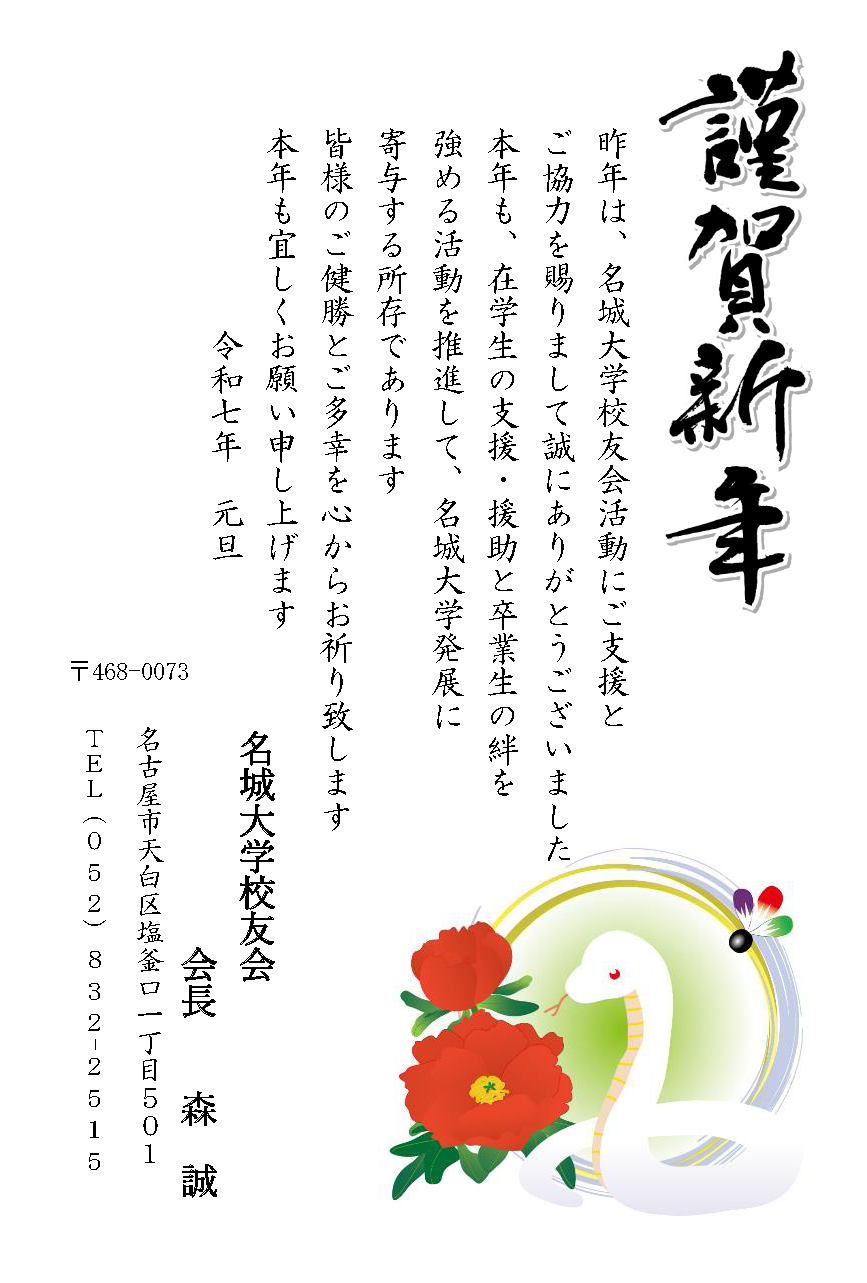 謹賀新年
昨年は、名城大学校友会活動にご支援と
ご協力を賜りまして誠にありがとうございました
本年も、在学生の支援・援助と卒業生の絆を
強める活動を推進して、名城大学発展に
寄与する所存であります
皆様のご健勝とご多幸を心からお祈り致します
本年も宜しくお願い申し上げます
令和七年　元旦
名城大学校友会
会長　森　誠
〒468-0073
名古屋市天白区塩釜口一丁目501
TEL(052)832-2515